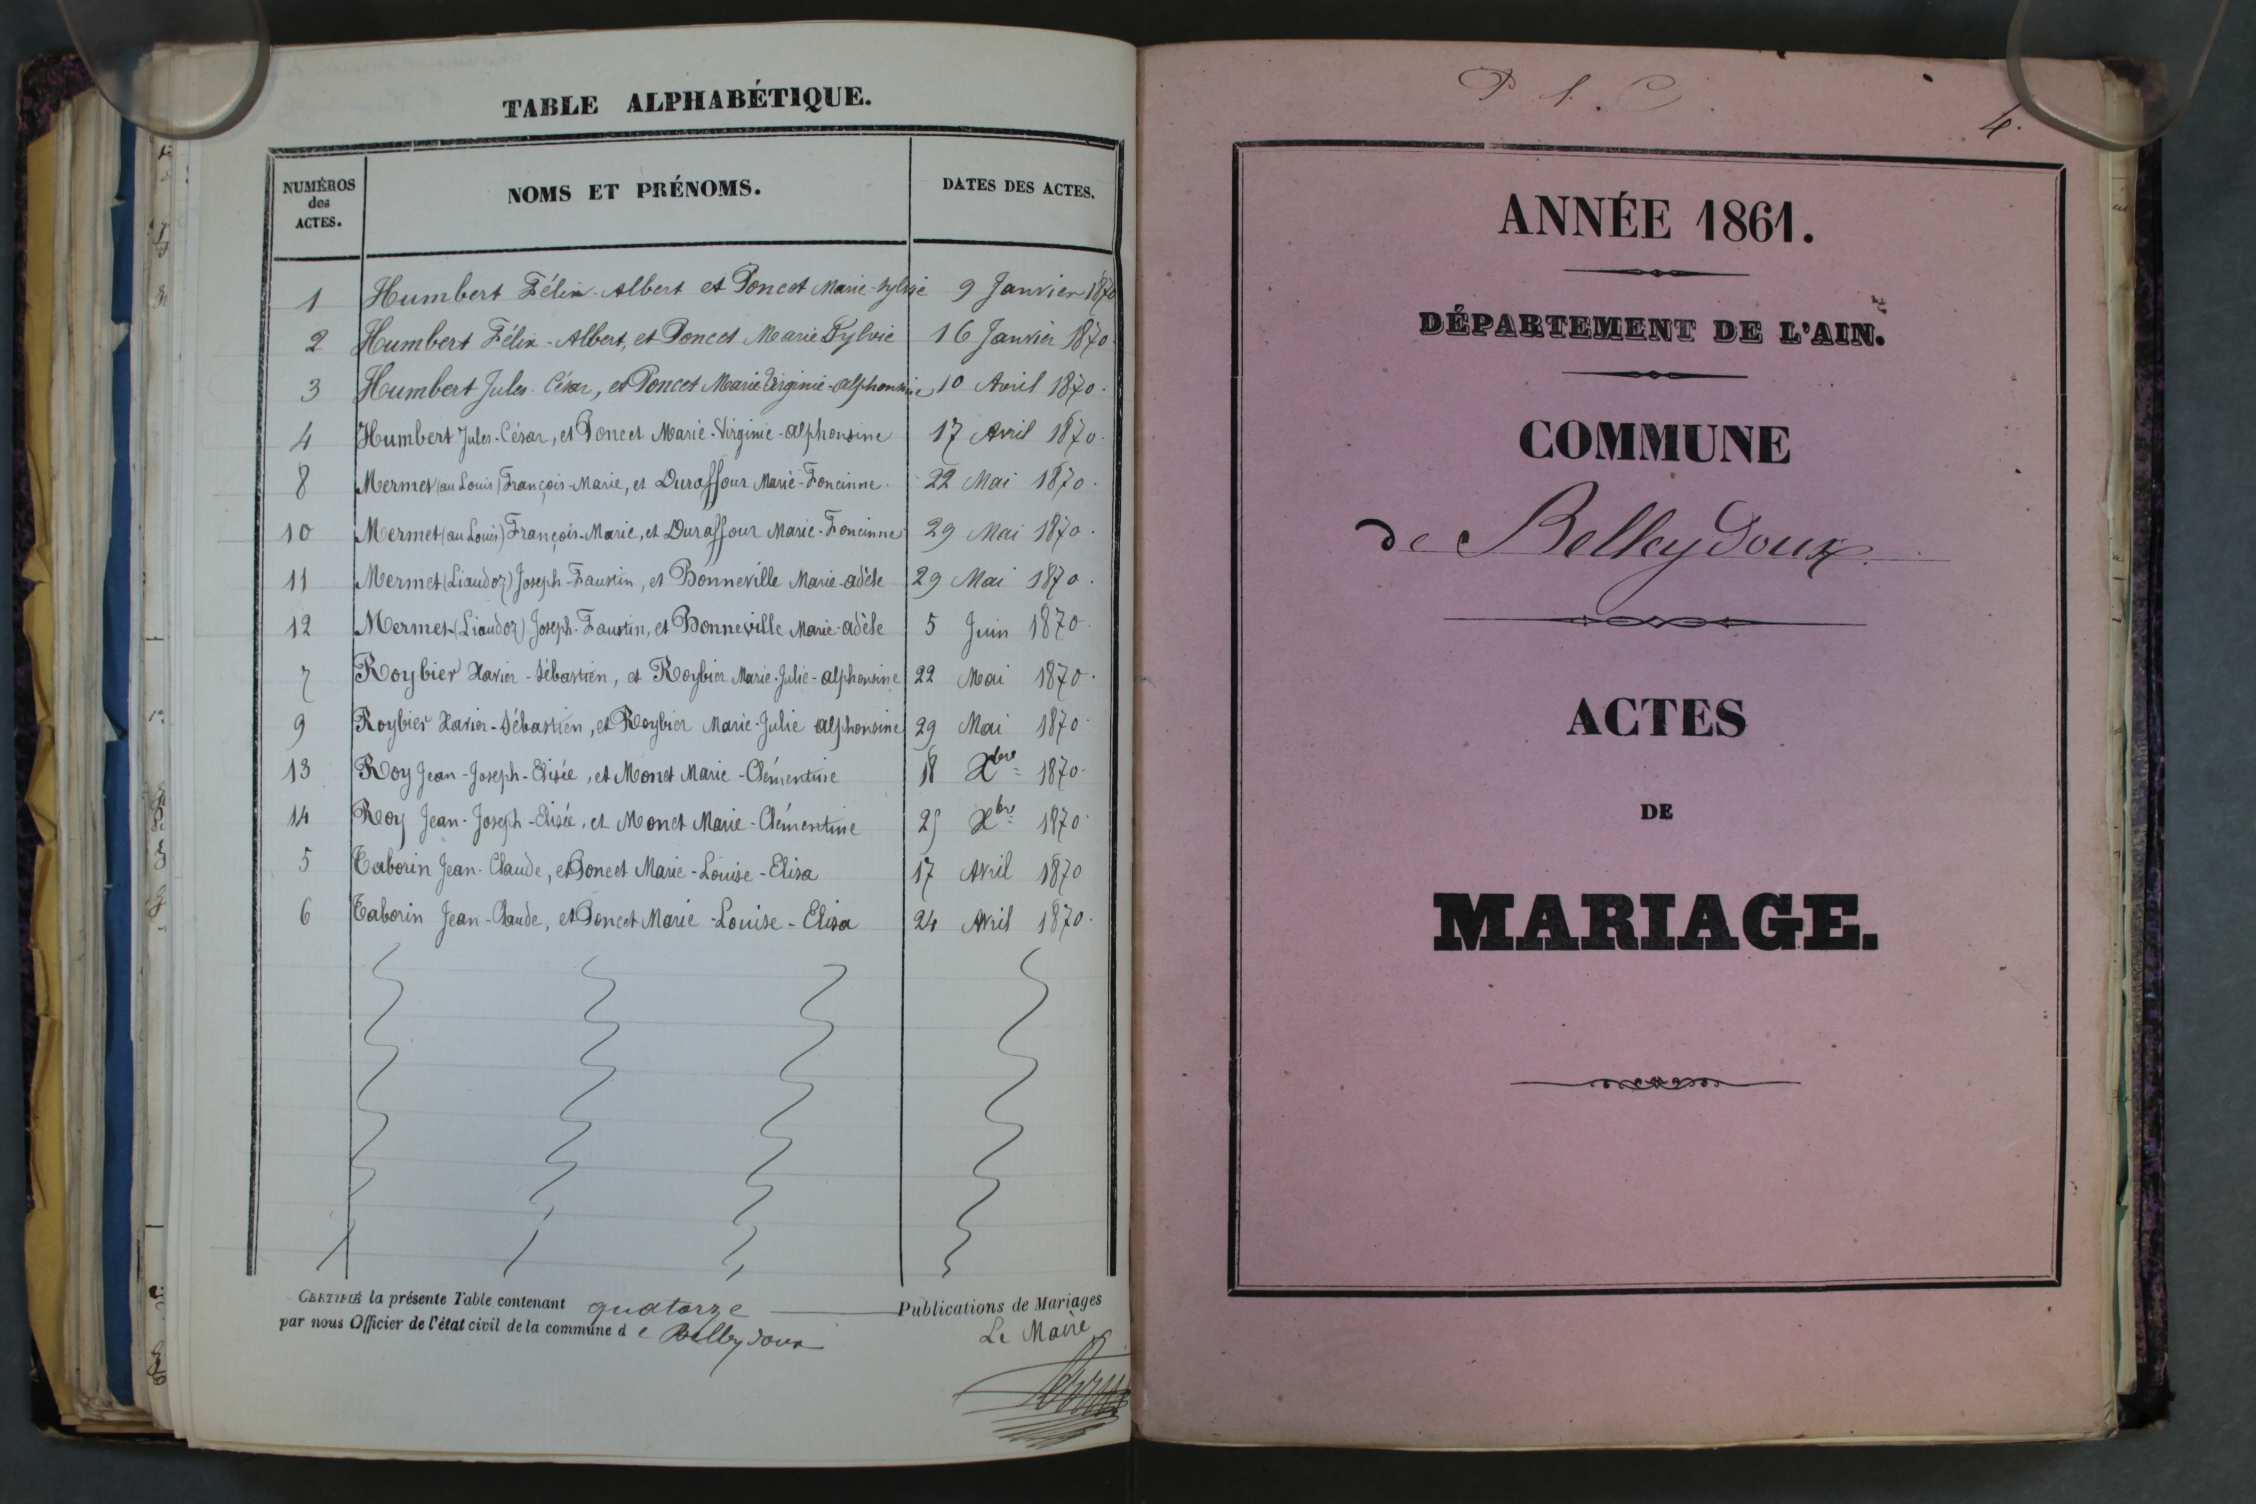 TABLE ALPHABÉTIQUE.
NUMÉROS des ACTES. NOMS ET PRÉNOMS. DATES DES ACTES.
1 Humbert Félix-Albert et Poncet Marie-Sylvie 9 Janvier 1870
2 Humbert Félix-Albert, et Poncet Marie Sylvie 16 Janvier 1870.
3 Humbert Jules César, et Poncet Marie Virginie-alphonsine 10 Avril 1870.
4 Humbert Jules-César, et Poncet Marie-Virginie-alphonsine 17 Avril 1870.
8 Mermet (au Louis) François-Marie, et Duraffour Marie-Foncinne. 22 Mai 1870.
10 Mermet (au Louis) François-Marie, et Duraffour Marie-Foncinne 29 Mai 1870.
11 Mermet (Liaudoz) Joseph-Faustin, et Bonneville Marie-adèle 29 Mai 1870.
12 Mermet (Liaudoz) Joseph-Faustin, et Bonneville Marie-adèle 5 Juin 1870.
7 Roybier Xavier-Sébastien, et Roybier Marie-Julie-alphonsine 22 Mai 1870.
9 Roybier Xavier-Sébastien, et Roybier Marie-Julie alphonsine 29 Mai 1870.
13 Roy Jean-Joseph-Elisée, et Monet Marie-Clémentine 18 Xbre 1870.
14 Roy Jean-Joseph-Elisée, et Monet Marie-Clémentine 25 Xbre 1870.
5 Taborin Jean-Claude, et Poncet Marie-Louise-Elisa 17 Avril 1870
6 Taborin Jean-Claude, et Poncet Marie-Louise-Elisa 24 Avril 1870.
CERTIFIÉ la présente Table contenant quatorze Publications de Mariages
par nous Officier de l'état civil de la commune de Belleydoux
Le Maire
4.
ANNÉE 1861.
DÉPARTEMENT DE L'AIN.
COMMUNE
de Belleydoux.
ACTES
DE
MARIAGE.